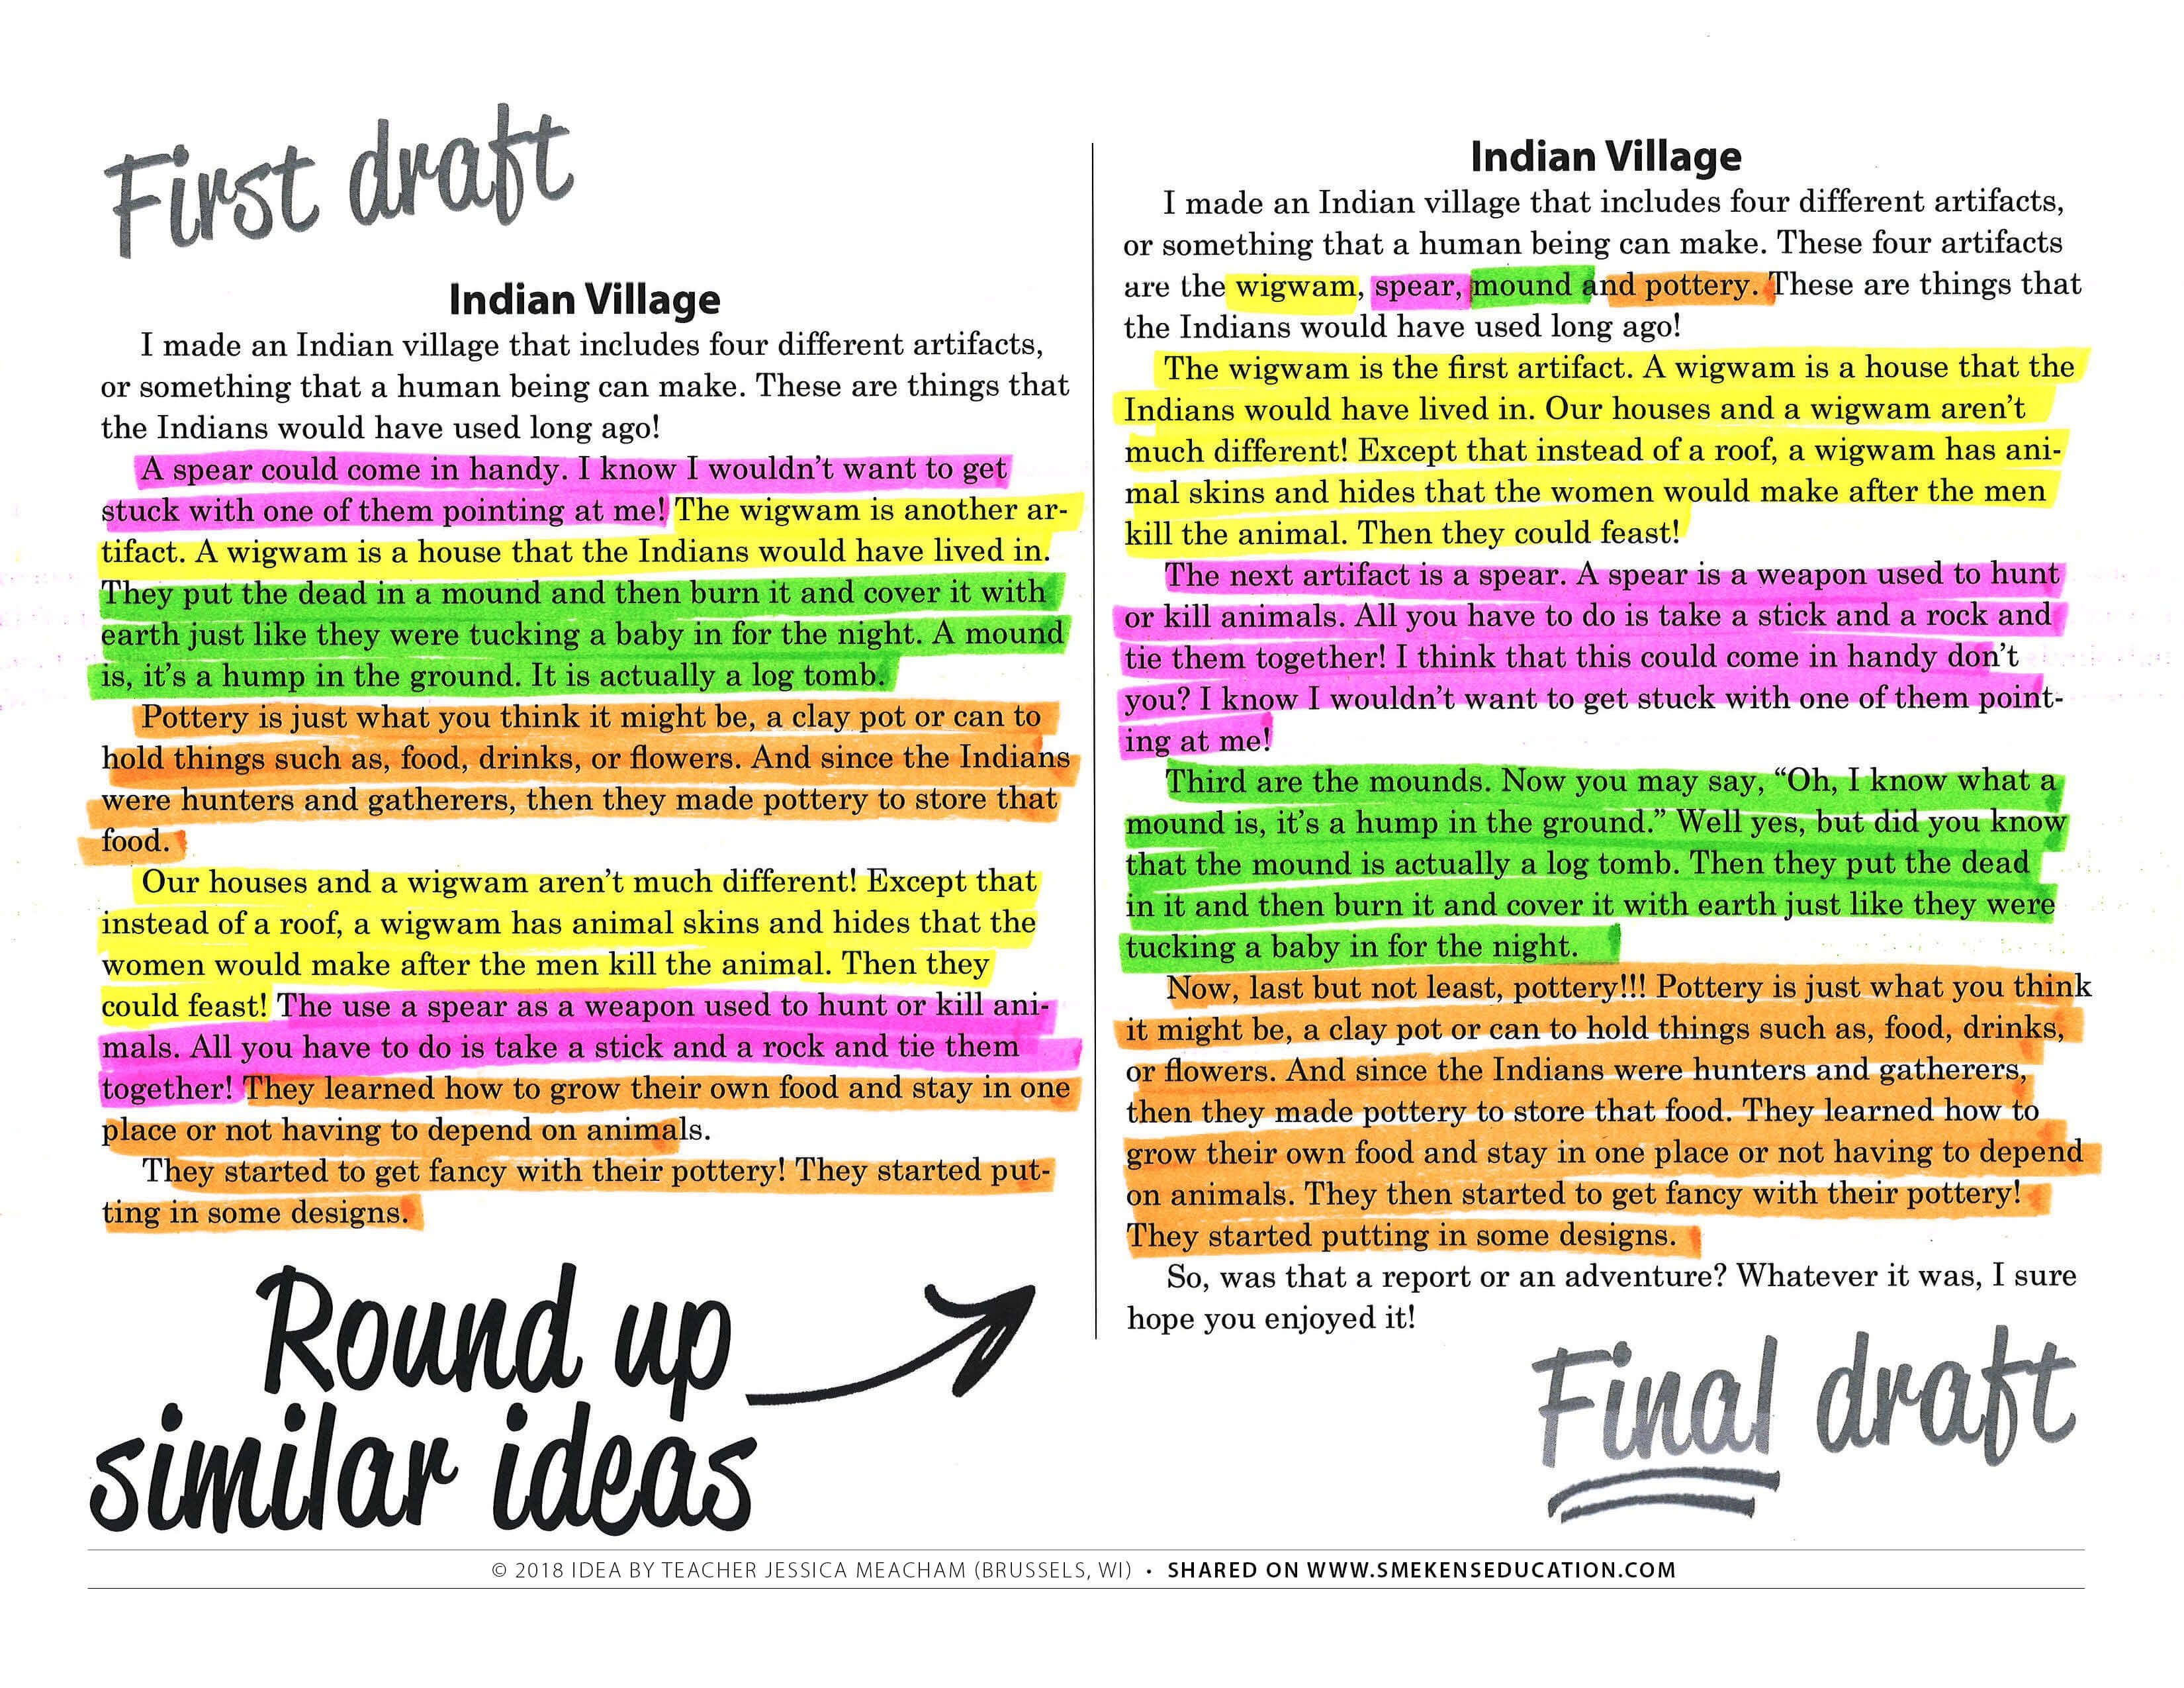 First draft
Indian Village
I made an Indian village that includes four different artifacts,
or something that a human being can make. These are things that
the Indians would have used long ago!
A spear could come in handy. I know I wouldn't want to get
stuck with one of them pointing at me! The wigwam is another ar-
tifact. A wigwam is a house that the Indians would have lived in.
They put the dead in a mound and then burn it and cover it with
earth just like they were tucking a baby in for the night. A mound
is, it's a hump in the ground. It is actually a log tomb.
Pottery is just what you think it might be, a clay pot or can to
hold things such as, food, drinks, or flowers. And since the Indians
were hunters and gatherers, then they made pottery to store that
food.
Our houses and a wigwam aren't much different! Except that
instead of a roof, a wigwam has animal skins and hides that the
women would make after the men kill the animal. Then they
could feast! The use a spear as a weapon used to hunt or kill ani-
mals. All you have to do is take a stick and a rock and tie them
together! They learned how to grow their own food and stay in one
place or not having to depend on animals.
They started to get fancy with their pottery! They started put-
ting in some designs.
Round up
similar ideas
Indian Village
I made an Indian village that includes four different artifacts,
or something that a human being can make. These four artifacts
are the wigwam, spear, mound and pottery. These are things that
the Indians would have used long ago!
The wigwam is the first artifact. A wigwam is a house that the
Indians would have lived in. Our houses and a wigwam aren't
much different! Except that instead of a roof, a wigwam has ani-
mal skins and hides that the women would make after the men
kill the animal. Then they could feast!
The next artifact is a spear. A spear is a weapon used to hunt
or kill animals. All you have to do is take a stick and a rock and
tie them together! I think that this could come in handy don't
you? I know I wouldn't want to get stuck with one of them point-
ing at me!
Third are the mounds. Now you may say, “Oh, I know what a
mound is, it's a hump in the ground.” Well yes, but did you know
that the mound is actually a log tomb. Then they put the dead
in it and then burn it and cover it with earth just like they were
tucking a baby in for the night.
Now, last but not least, pottery!!! Pottery is just what you think
it might be, a clay pot or can to hold things such as, food, drinks,
or flowers. And since the Indians were hunters and gatherers,
then they made pottery to store that food. They learned how to
grow their own food and stay in one place or not having to depend
on animals. They then started to get fancy with their pottery!
They started putting in some designs.
So, was that a report or an adventure? Whatever it was, I sure
hope you enjoyed it!
Final draft
© 2018 IDEA BY TEACHER JESSICA MEACHAM (BRUSSELS, WI) • SHARED ON WWW.SMEKENSEDUCATION.COM